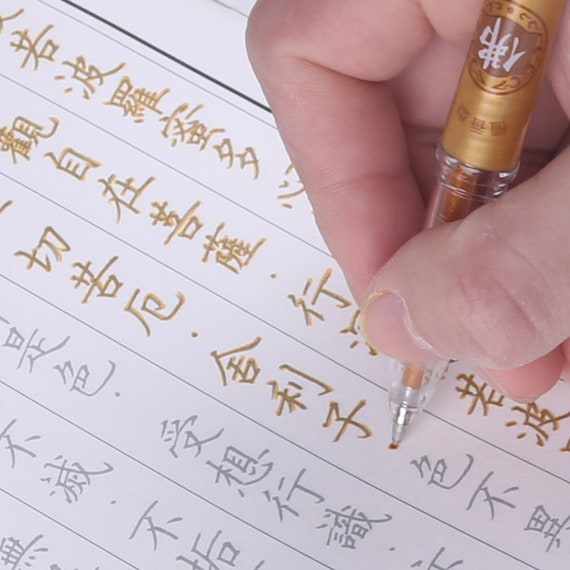 若波羅蜜多
觀自在菩薩．行 若波
一切苦厄．舍利子 色不異
是色．受想行識．
不滅．不垢
無
佛